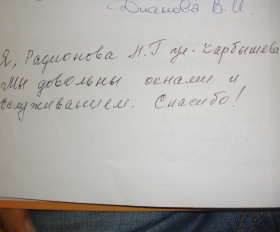 Дианова В.И
Я, Радионова Н.Г ул. Карбышева
Мы довольны окнами и
бслуживанием. Спасибо!